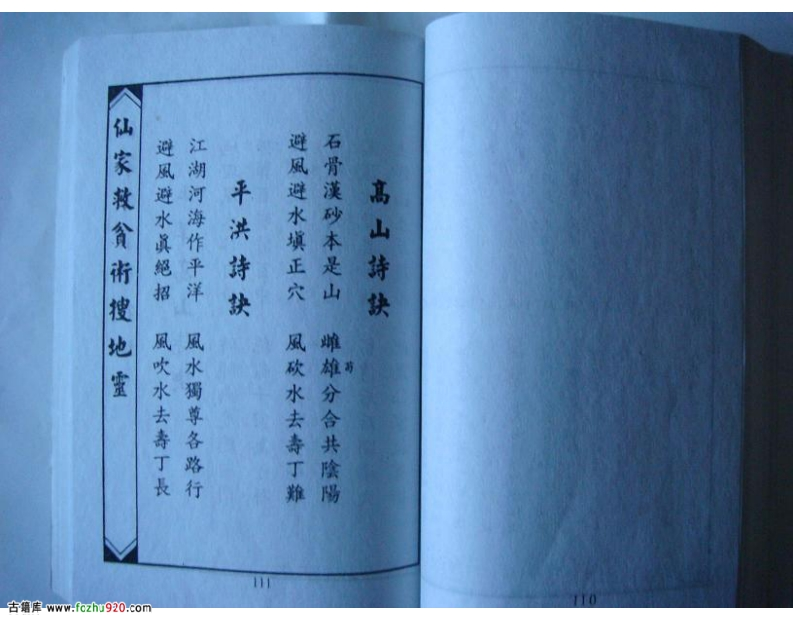 高山詩訣
石骨漢砂本是山 雌雄分合共陰陽
避風避水塡正穴 風砍水去壽丁難
平洪詩訣
江湖河海作平洋 風水獨尊各路行
避風避水眞絕招 風吹水去壽丁長
仙家救貧術搜地靈
111
110
古籍库 www.fczhu920.com